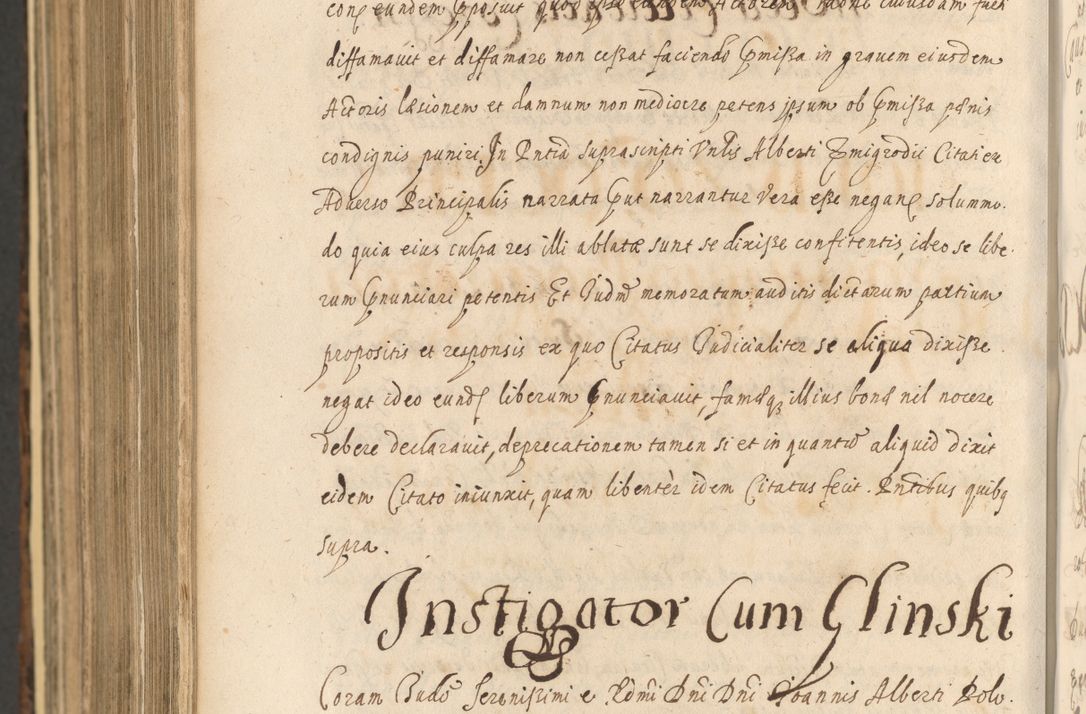 diffamauit et diffamare non ceßat faciendo pmißa in grauem eiusdem
Actoris læsionem et damnum non mediocre petens ipsum ob pmißa pœnis
condignis puniri. In Pntia suprascripti Vnlis Alberti Zmigrodii Citati ex
Aduerso Principalis narrata put narrantur Vera eße negans solummo.
do quia eius culpa res illi ablatæ sunt se dixiße confitentis, ideo se libe.
rum pnunciari petentis Et Iudm memoratum auditis dictarum partium
propositis et responsis ex quo Citatus Iudicialiter se aliqua dixiße
negat ideo eund liberum pnunciauit, famæq illius bonæ nil nocere
debere declarauit, deprecationem tamen si et in quanto aliquid dixit
eidem Citato iniunxit, quam libenter idem Citatus fecit. Pntibus quibq
supra.
Instigator Cum Glinski
Coram Iudo Serenißimi e Rdmi Dni Dni Ioannis Alberti Polo.